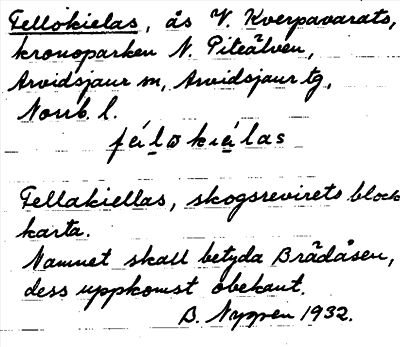 Fellokielas, ås V. Kverpavarats,
kronoparken N. Piteälven,
Arvidsjaur sn, Arvidsjaur tg,
Norrb. l.
féi̯lɷkiéi̯las
Fellakiellas, skogsrevirets block
karta.
Namnet skall betyda Brädåsen,
dess uppkomst obekant.
B. Nygren 1932.